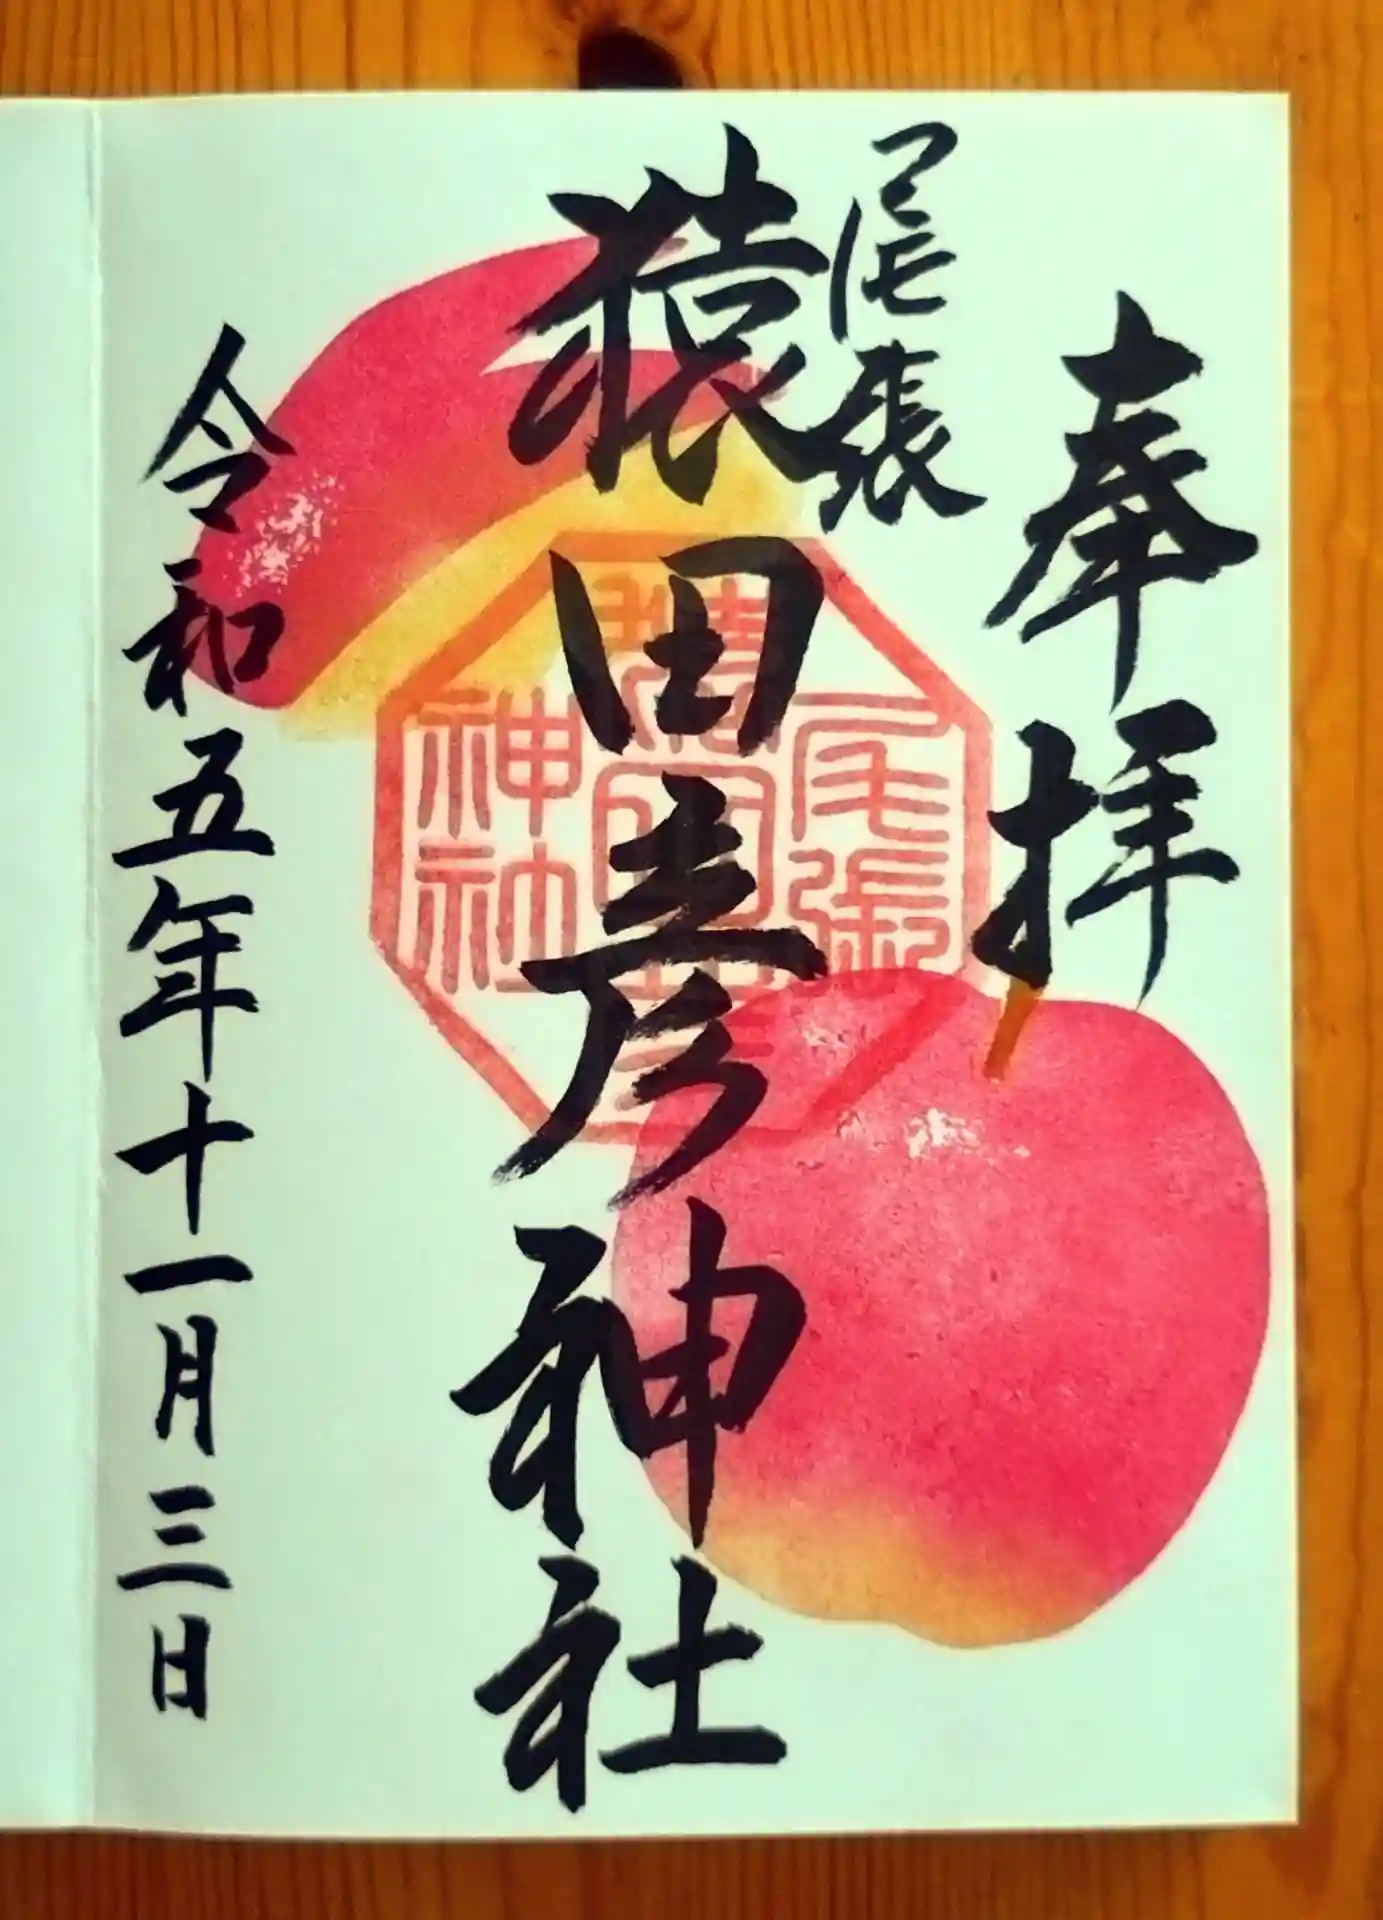 奉拝
尾張
猿田彦神社
令和五年十一月三日
尾張
神社